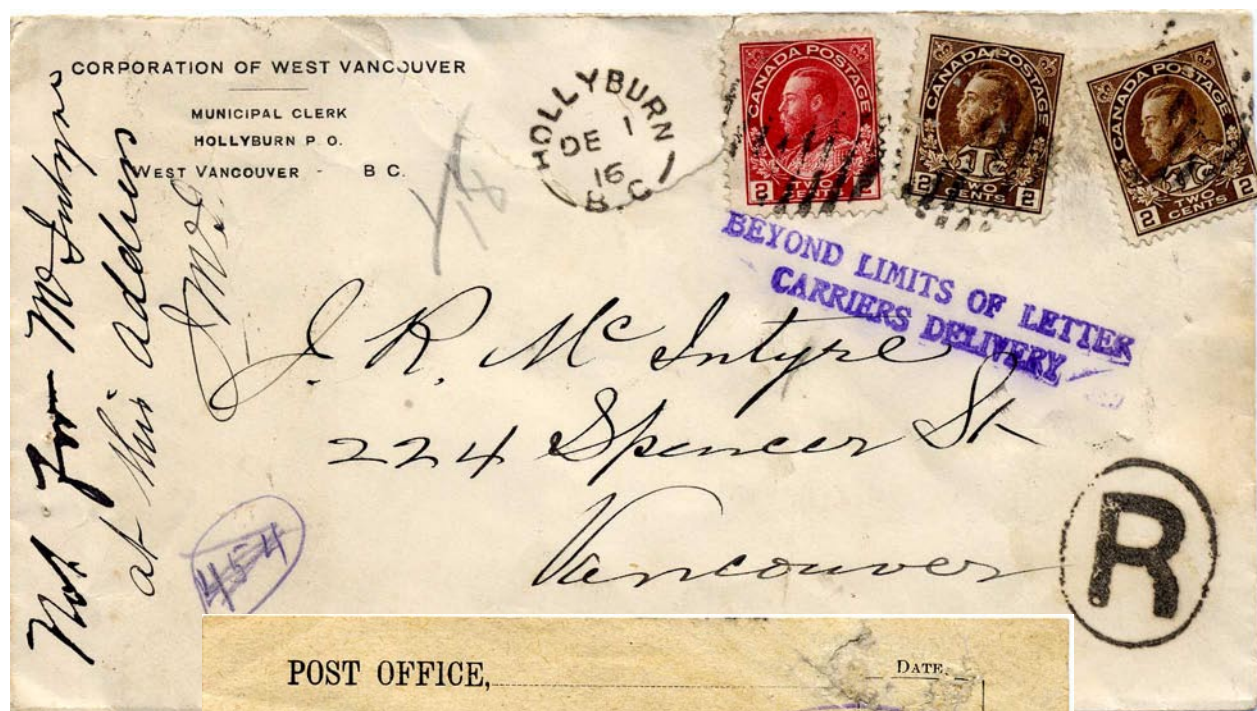 CORPORATION OF WEST VANCOUVER
MUNICIPAL CLERK
HOLLYBURN P. O.
WEST VANCOUVER - B C.
HOLLYBURN
DE 1
16
B.C
CANADA POSTAGE
2 TWO CENTS 2
CANADA POSTAGE
1Tc
2 TWO CENTS 2
CANADA POSTAGE
1Tc
2 TWO CENTS 2
BEYOND LIMITS OF LETTER
CARRIERS DELIVERY
J. R. Mc Intyre
224 Spencer St
Vancouver
Not For McIntyre
at this address
454
R
POST OFFICE,
DATE